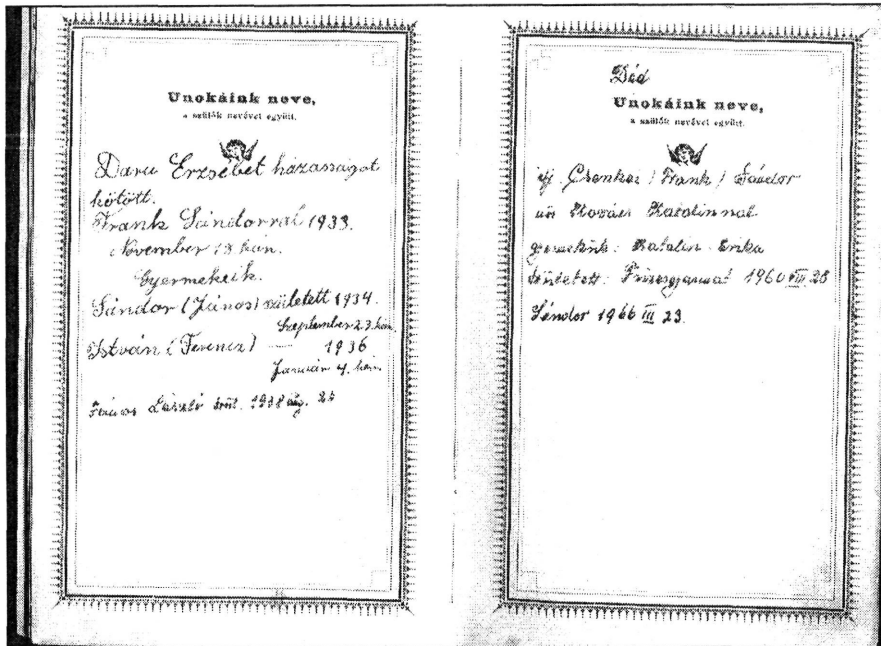 Unokáink neve,
a szülők nevével együtt.
Daru Erzsébet házasságot
kötött.
Frank Sándorral 1933.
November 13 kán.
Gyermekeik.
Sándor (János) született 1934.
Szeptember 23. kán.
István (Ferencz) — 1936
Január 4. kén
László szül. 1938 aug. 28
Déd
Unokáink neve,
a szülők nevével együtt.
ifj. Csenkei / Frank / Sándor
Kovács Katalinnal
gyermekünk: Katalin Erika
született: 1960 VIII 28
Sándor 1966 III 23.